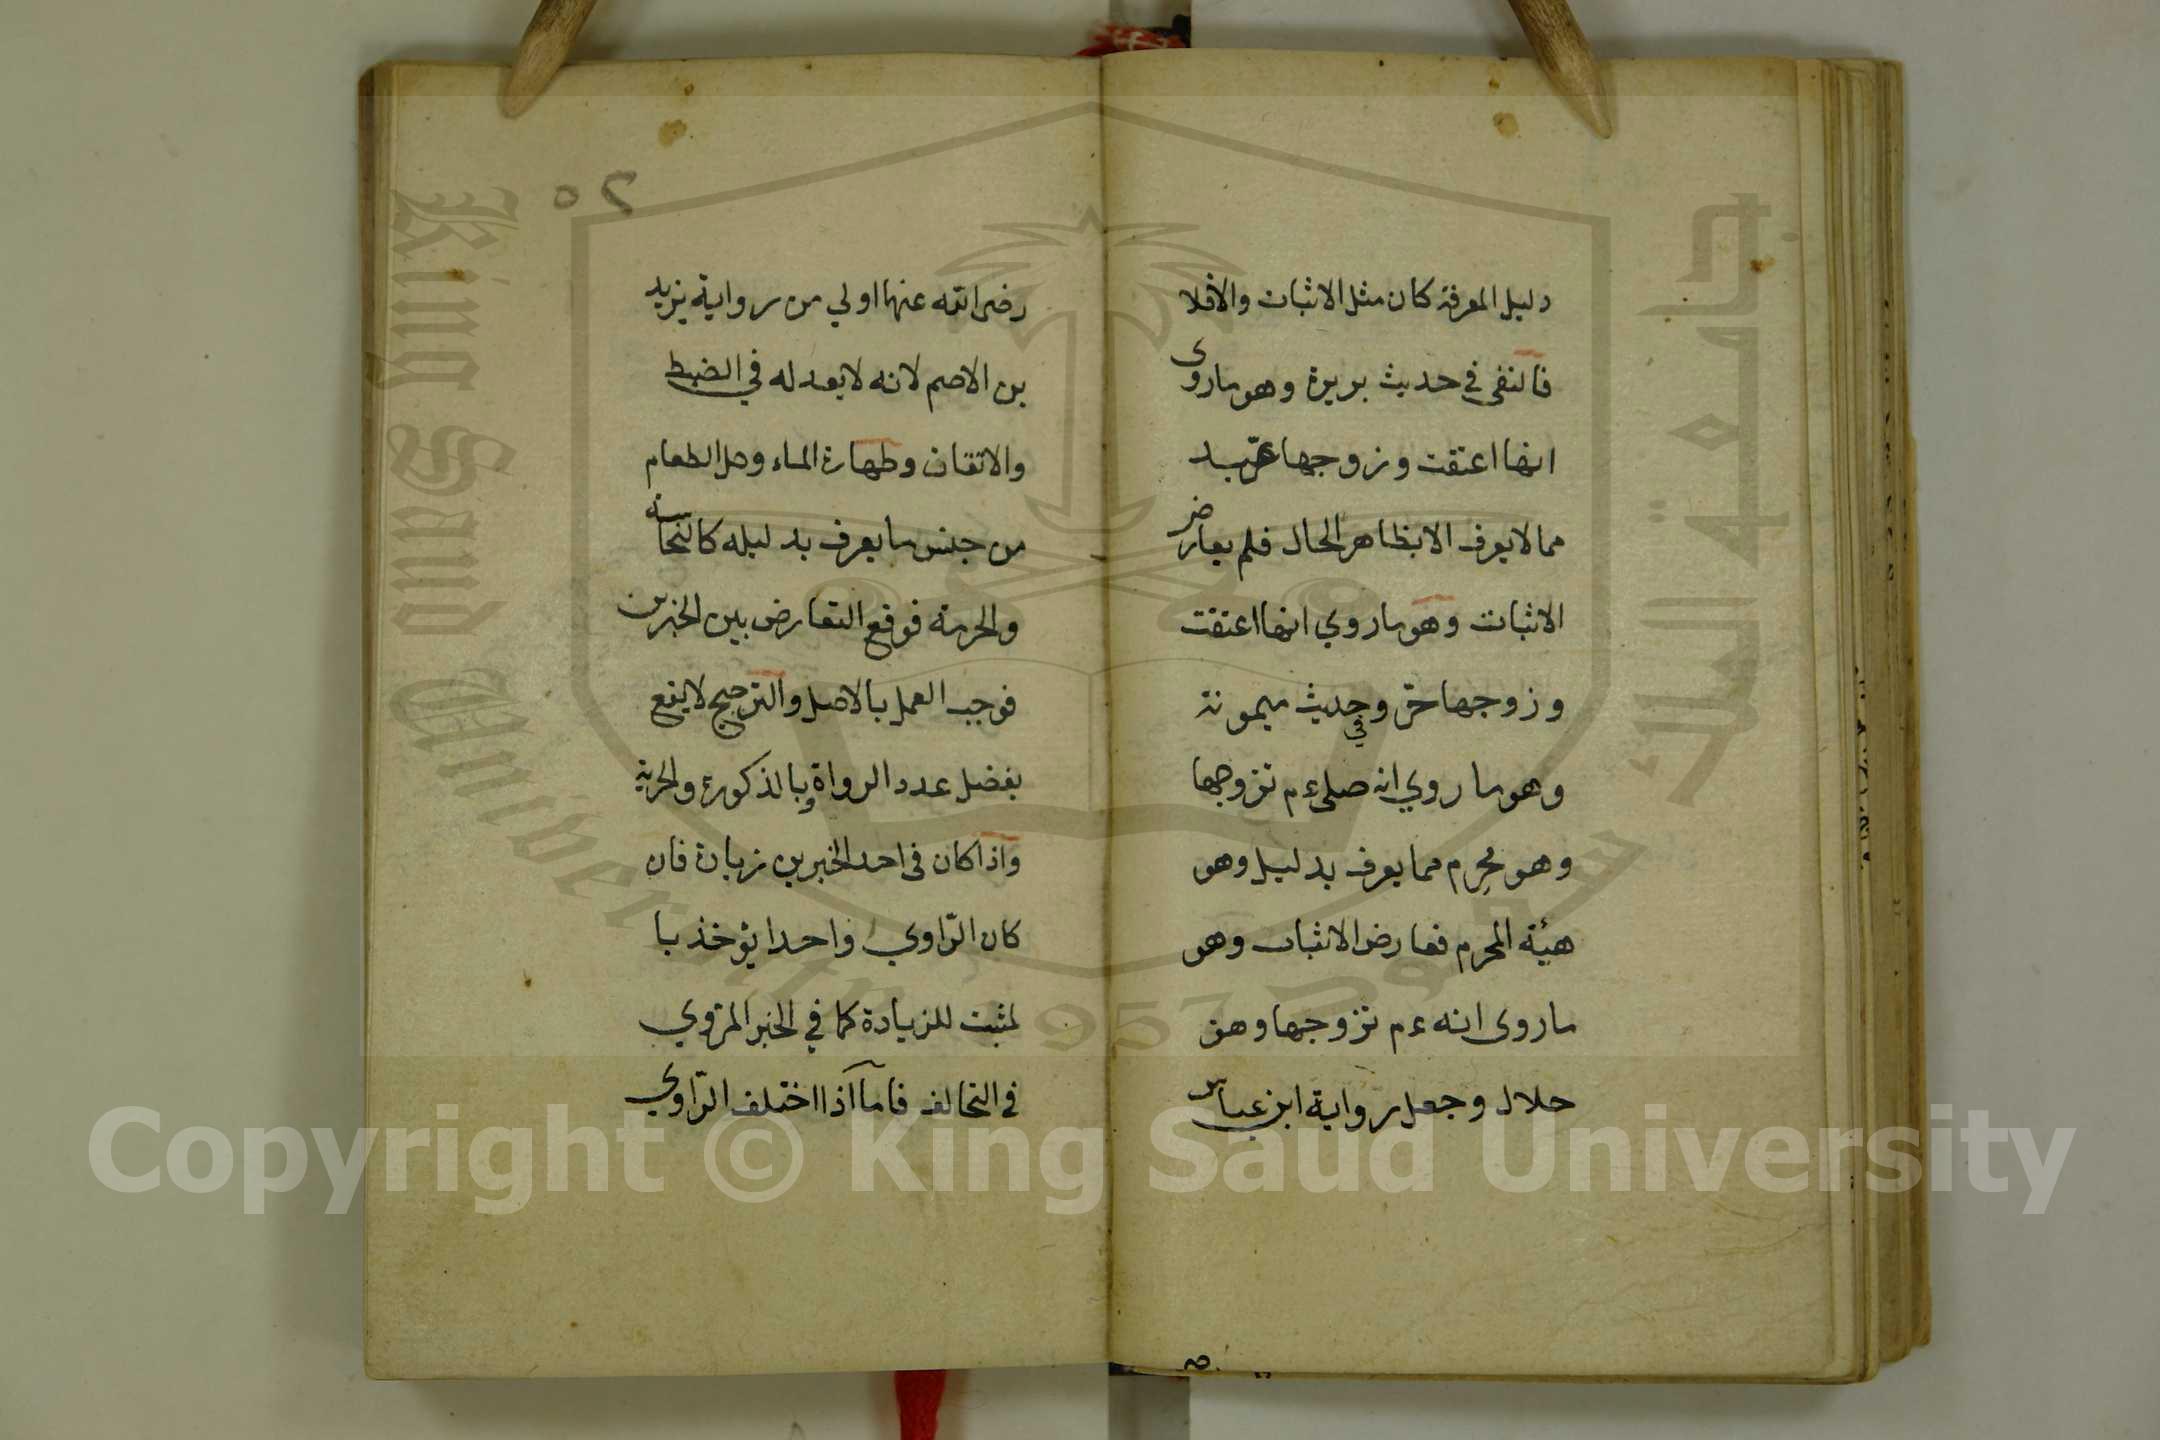 دليل المعرفة كان مثل الاثبات والافلا
فالنفى في حديث بريرة وهو ماروى
انها اعتقت وزوجها عبد
مما لا يعرف الا بظاهر الحال فلم يعارض
الاثبات وهو ماروي انها اعتقت
وزوجها حرّ وفي حديث ميمونة
وهو ما روي انه صلىءم تزوجها
وهو محرم مما يعرف بدليل وهو
هيئة المحرم فعارض الاثبات وهو
ماروى انه ءم تزوجها وهو
حلال وجعل رواية ابن عباس
٢٥
رضى الله عنهما اولي من رواية يزيد
بن الاصم لانه لا يعدله في الضبط
والاتقان وطهارة الماء وحل الطعام
من جنس ما يعرف بدليله كالنجاسة
والحرمة فوقع التعارض بين الخبرين
فوجب العمل بالاصل والترجيح لا يقع
بفضل عدد الرواة وبالذكورة والحرية
واذا كان فى احد الخبرين زيادة فان
كان الرّاوي واحدا يؤخذ با
لمثبت للزيادة كما في الخبر المروي
في التحالف فاما اذا اختلف الرّاوي
King Saud University
جامعة الملك سعود
1957
Copyright © King Saud University